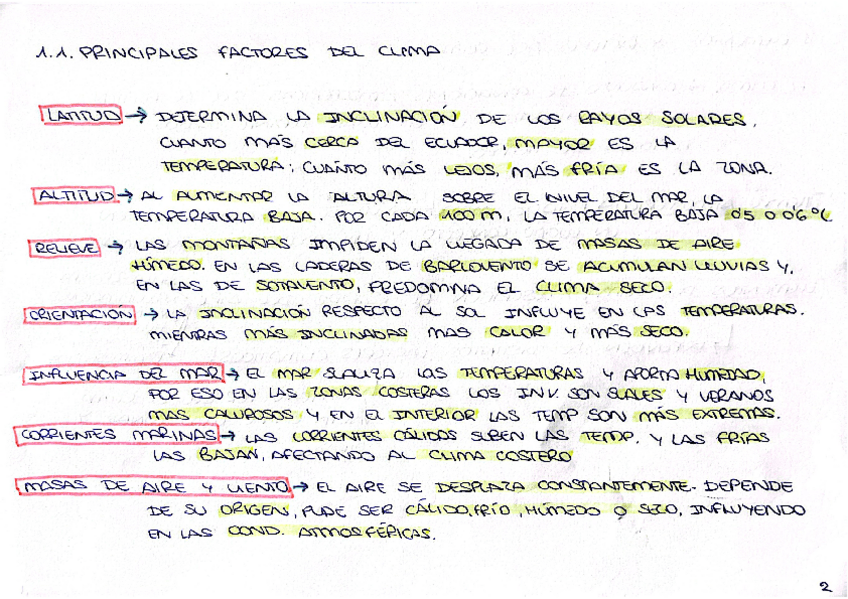 1.1. PRINCIPALES FACTORES DEL CLIMA
LATITUD → DETERMINA LA INCLINACIÓN DE LOS RAYOS SOLARES.
CUANTO MÁS CERCA DEL ECUADOR, MAYOR ES LA
TEMPERATURA; CUANTO MÁS LEJOS, MÁS FRÍA ES LA ZONA.
ALTITUD → AL AUMENTAR LA ALTURA SOBRE EL NIVEL DEL MAR, LA
TEMPERATURA BAJA. POR CADA 100 m, LA TEMPERATURA BAJA 0'5 o 0'6 °C
RELIEVE → LAS MONTAÑAS IMPIDEN LA LLEGADA DE MASAS DE AIRE
HÚMEDO. EN LAS LADERAS DE BARLOVENTO SE ACUMULAN LLUVIAS Y,
EN LAS DE SOTAVENTO, PREDOMINA EL CLIMA SECO.
ORIENTACIÓN → LA INCLINACIÓN RESPECTO AL SOL INFLUYE EN LAS TEMPERATURAS.
MIENTRAS MÁS INCLINADAS, MAS CALOR Y MÁS SECO.
INFLUENCIA DEL MAR → EL MAR SUAVIZA LAS TEMPERATURAS Y APORTA HUMEDAD,
POR ESO EN LAS ZONAS COSTERAS LOS INV. SON SUAVES Y VERANOS
MAS CALUROSOS Y EN EL INTERIOR LAS TEMP SON MÁS EXTREMAS.
CORRIENTES MARINAS → LAS CORRIENTES CÁLIDAS SUBEN LAS TEMP. Y LAS FRÍAS
LAS BAJAN, AFECTANDO AL CLIMA COSTERO
MASAS DE AIRE Y VIENTO → EL AIRE SE DESPLAZA CONSTANTEMENTE. DEPENDE
DE SU ORIGEN, PUDE SER CÁLIDO, FRÍO, HÚMEDO O SECO, INFLUYENDO
EN LAS COND. ATMOSFÉRICAS.
2